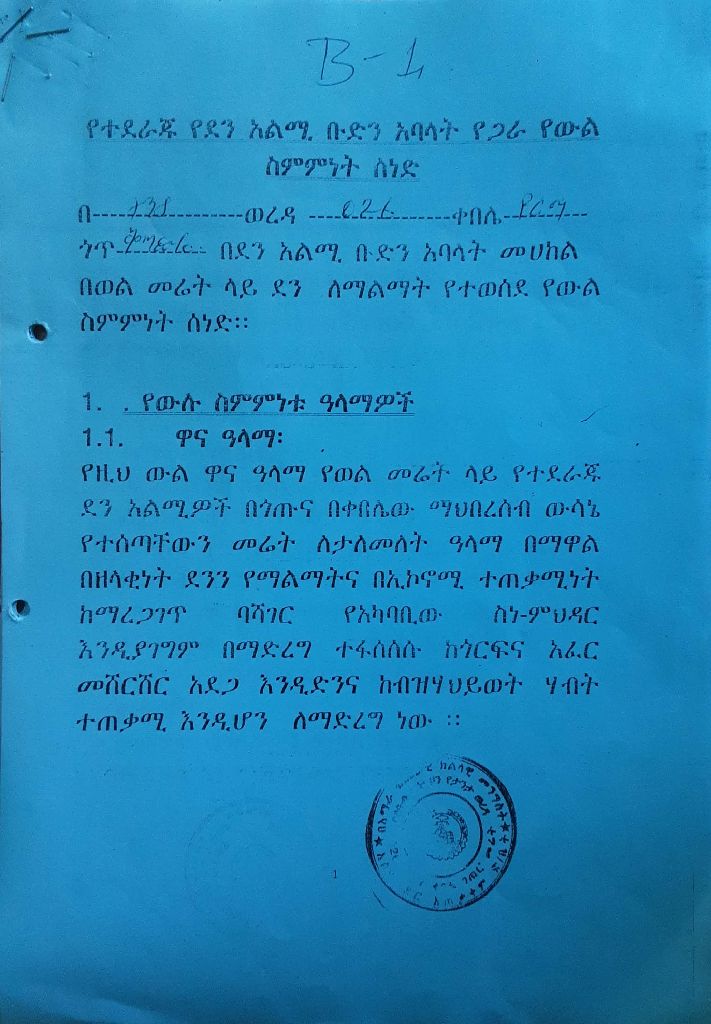 B-1
የተደራጁ የደን አልሚ ቡድን አባላት የጋራ የውል
ስምምነት ሰነድ
በ---------------ወረዳ ---------------ቀበሌ----------
ጎጥ---------- በደን አልሚ ቡድን አባላት መሀከል
በወል መሬት ላይ ደን ለማልማት የተወሰደ የውል
ስምምነት ሰነድ፡፡
1. . የውሉ ስምምነቱ ዓላማዎች
1.1. ዋና ዓላማ፡
የዚህ ውል ዋና ዓላማ የወል መሬት ላይ የተደራጁ
ደን አልሚዎች በጎጡና በቀበሌው ማህበረሰብ ውሳኔ
የተሰጣቸውን መሬት ለታለመለት ዓላማ በማዋል
በዘላቂነት ደንን የማልማትና በኢኮኖሚ ተጠቃሚነት
ከማረጋገጥ ባሻገር የአካባቢው ስነ-ምህዳር
እንዲያገግም በማድረግ ተፋሰሰሱ ከጎርፍና አፈር
መሸርሸር አደጋ እንዲድንና ከብዝሃህይወት ሃብት
ተጠቃሚ እንዲሆን ለማድረግ ነው ፡፡
1